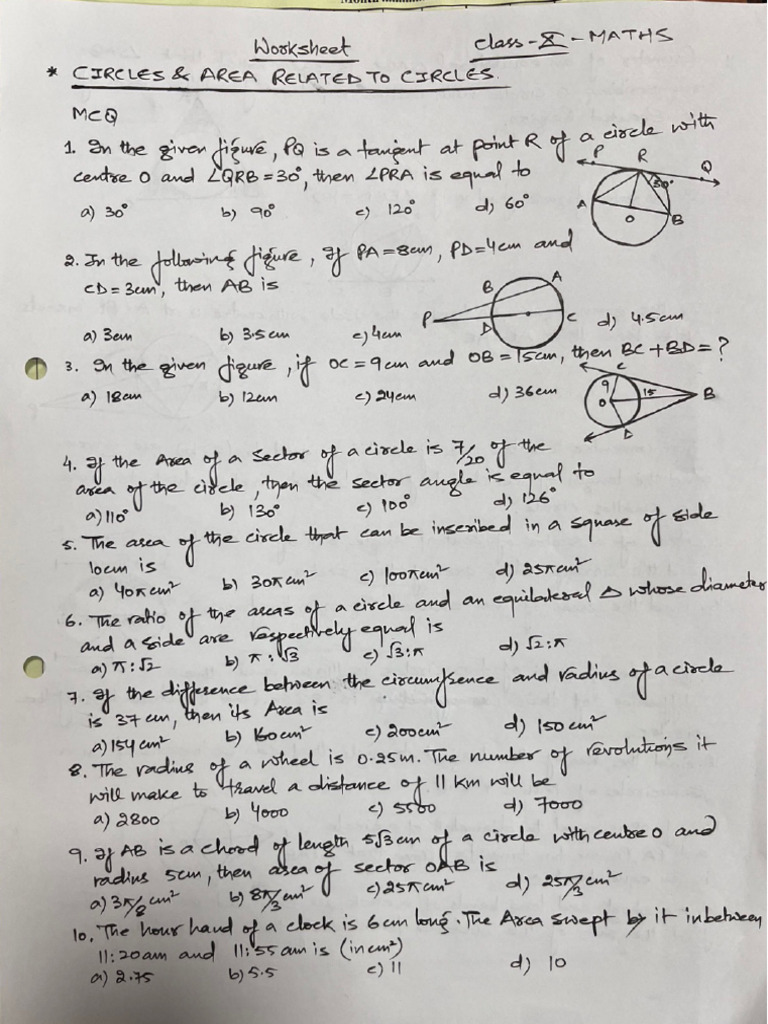 Worksheet Class-X-MATHS
* CIRCLES & AREA RELATED TO CIRCLES.
MCQ
1. In the given figure, PQ is a tangent at point R of a circle with
centre O and ∠QRB=30°, then ∠PRA is equal to
a) 30° b) 90° c) 120° d) 60°
P R Q 30° A O B
2. In the following figure, If PA=8cm, PD=4cm and
CD=3cm, then AB is
a) 3cm b) 3.5cm c) 4cm d) 4.5cm
A B P D C
3. In the given figure, if OC=9cm and OB=15cm, then BC+BD=?
a) 18cm b) 12cm c) 24cm d) 36cm
C 9 O 15 B D
4. If the Area of a sector of a circle is 7/20 of the
area of the circle, then the sector angle is equal to
a) 110° b) 130° c) 100° d) 126°
5. The area of the circle that can be inscribed in a square of side
10cm is
a) 40π cm² b) 30π cm² c) 100π cm² d) 25π cm²
6. The ratio of the areas of a circle and an equilateral Δ whose diameter
and a side are respectively equal is
a) π:√2 b) π:√3 c) √3:π d) √2:π
7. If the difference between the circumfrence and radius of a circle
is 37 cm, then its Area is
a) 154 cm² b) 160 cm² c) 200 cm² d) 150 cm²
8. The radius of a wheel is 0.25m. The number of revolutions it
will make to travel a distance of 11 Km will be
a) 2800 b) 4000 c) 5500 d) 7000
9. If AB is a chord of length 5√3 cm of a circle with centre O and
radius 5cm, then area of sector OAB is
a) 3π/2 cm² b) 8π/3 cm² c) 25π cm² d) 25π/3 cm²
10. The hour hand of a clock is 6cm long. The Area swept by it inbetween
11:20am and 11:55am is (in cm²)
a) 2.75 b) 5.5 c) 11 d) 10